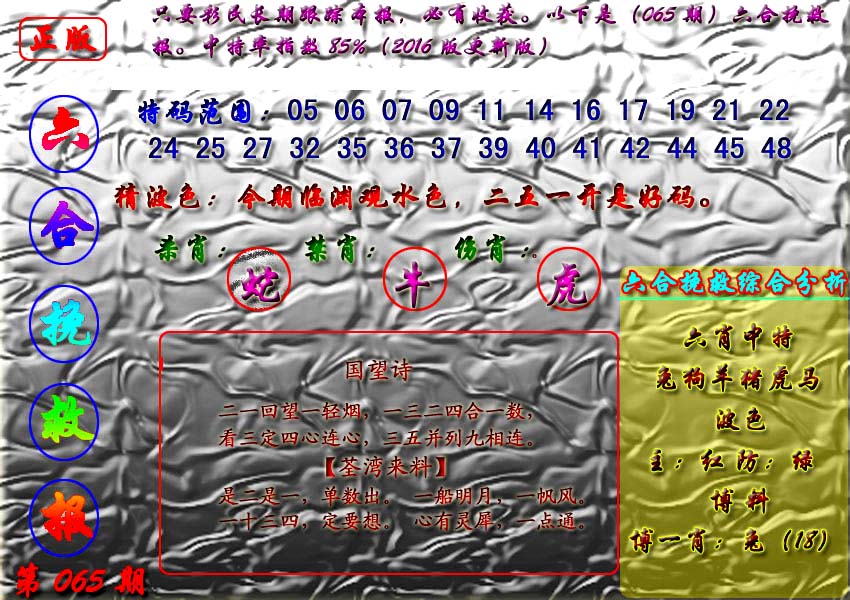 正版
只要彩民长期跟踪本报，必有收获。以下是（065期）六合挽救
报。中特率指数85%（2016版更新版）
六合挽救报
第065期
特码范围：05 06 07 09 11 14 16 17 19 21 22
24 25 27 32 35 36 37 39 40 41 42 44 45 48
猜波色：今期临渊观水色，二五一开是好码。
杀肖：蛇 禁肖：牛 伤肖：虎
国望诗
二一回望一轻烟，一三二四合一数，
看三定四心连心，三五并列九相连。
【荃湾来料】
是二是一，单数出。 一船明月，一帆风。
一十三四，定要想。 心有灵犀，一点通。
六合挽救综合分析
六肖中特
兔狗羊猪虎马
波色
主：红防：绿
博料
博一肖：兔（18）